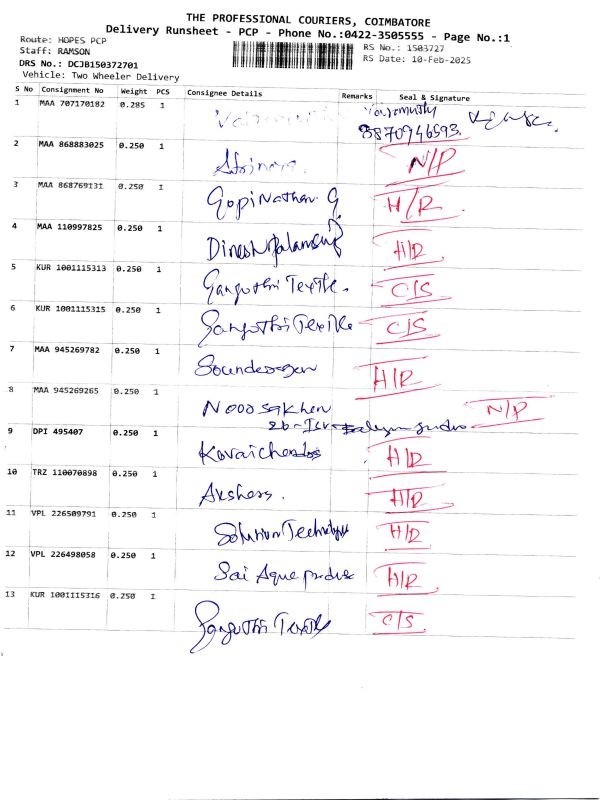 THE PROFESSIONAL COURIERS, COIMBATORE
Delivery Runsheet - PCP - Phone No.:0422-3505555 - Page No.:1
Route: HOPES PCP
Staff: RAMSON
DRS No.: DCJB150372701
Vehicle: Two Wheeler Delivery
RS No.: 1503727
RS Date: 10-Feb-2025
S No Consignment No Weight PCS Consignee Details Remarks Seal & Signature
1 MAA 707170182 0.285 1
8870946593
2 MAA 868883025 0.250 1 N/P
3 MAA 868769131 0.250 1 Gopinathan G. H/R
4 MAA 110997825 0.250 1 Dinesh H/R
5 KUR 1001115313 0.250 1 Ganguthri Textile. C/S
6 KUR 1001115315 0.250 1 Ganguthri Textile C/S
7 MAA 945269782 0.250 1 H/R
8 MAA 945269265 0.250 1 N/P
9 DPI 495407 0.250 1 H/R
10 TRZ 110070898 0.250 1 H/R
11 VPL 226509791 0.250 1 Solution H/R
12 VPL 226498058 0.250 1 Sai Aqua H/R
13 KUR 1001115316 0.250 1 Ganguthri Textile C/S